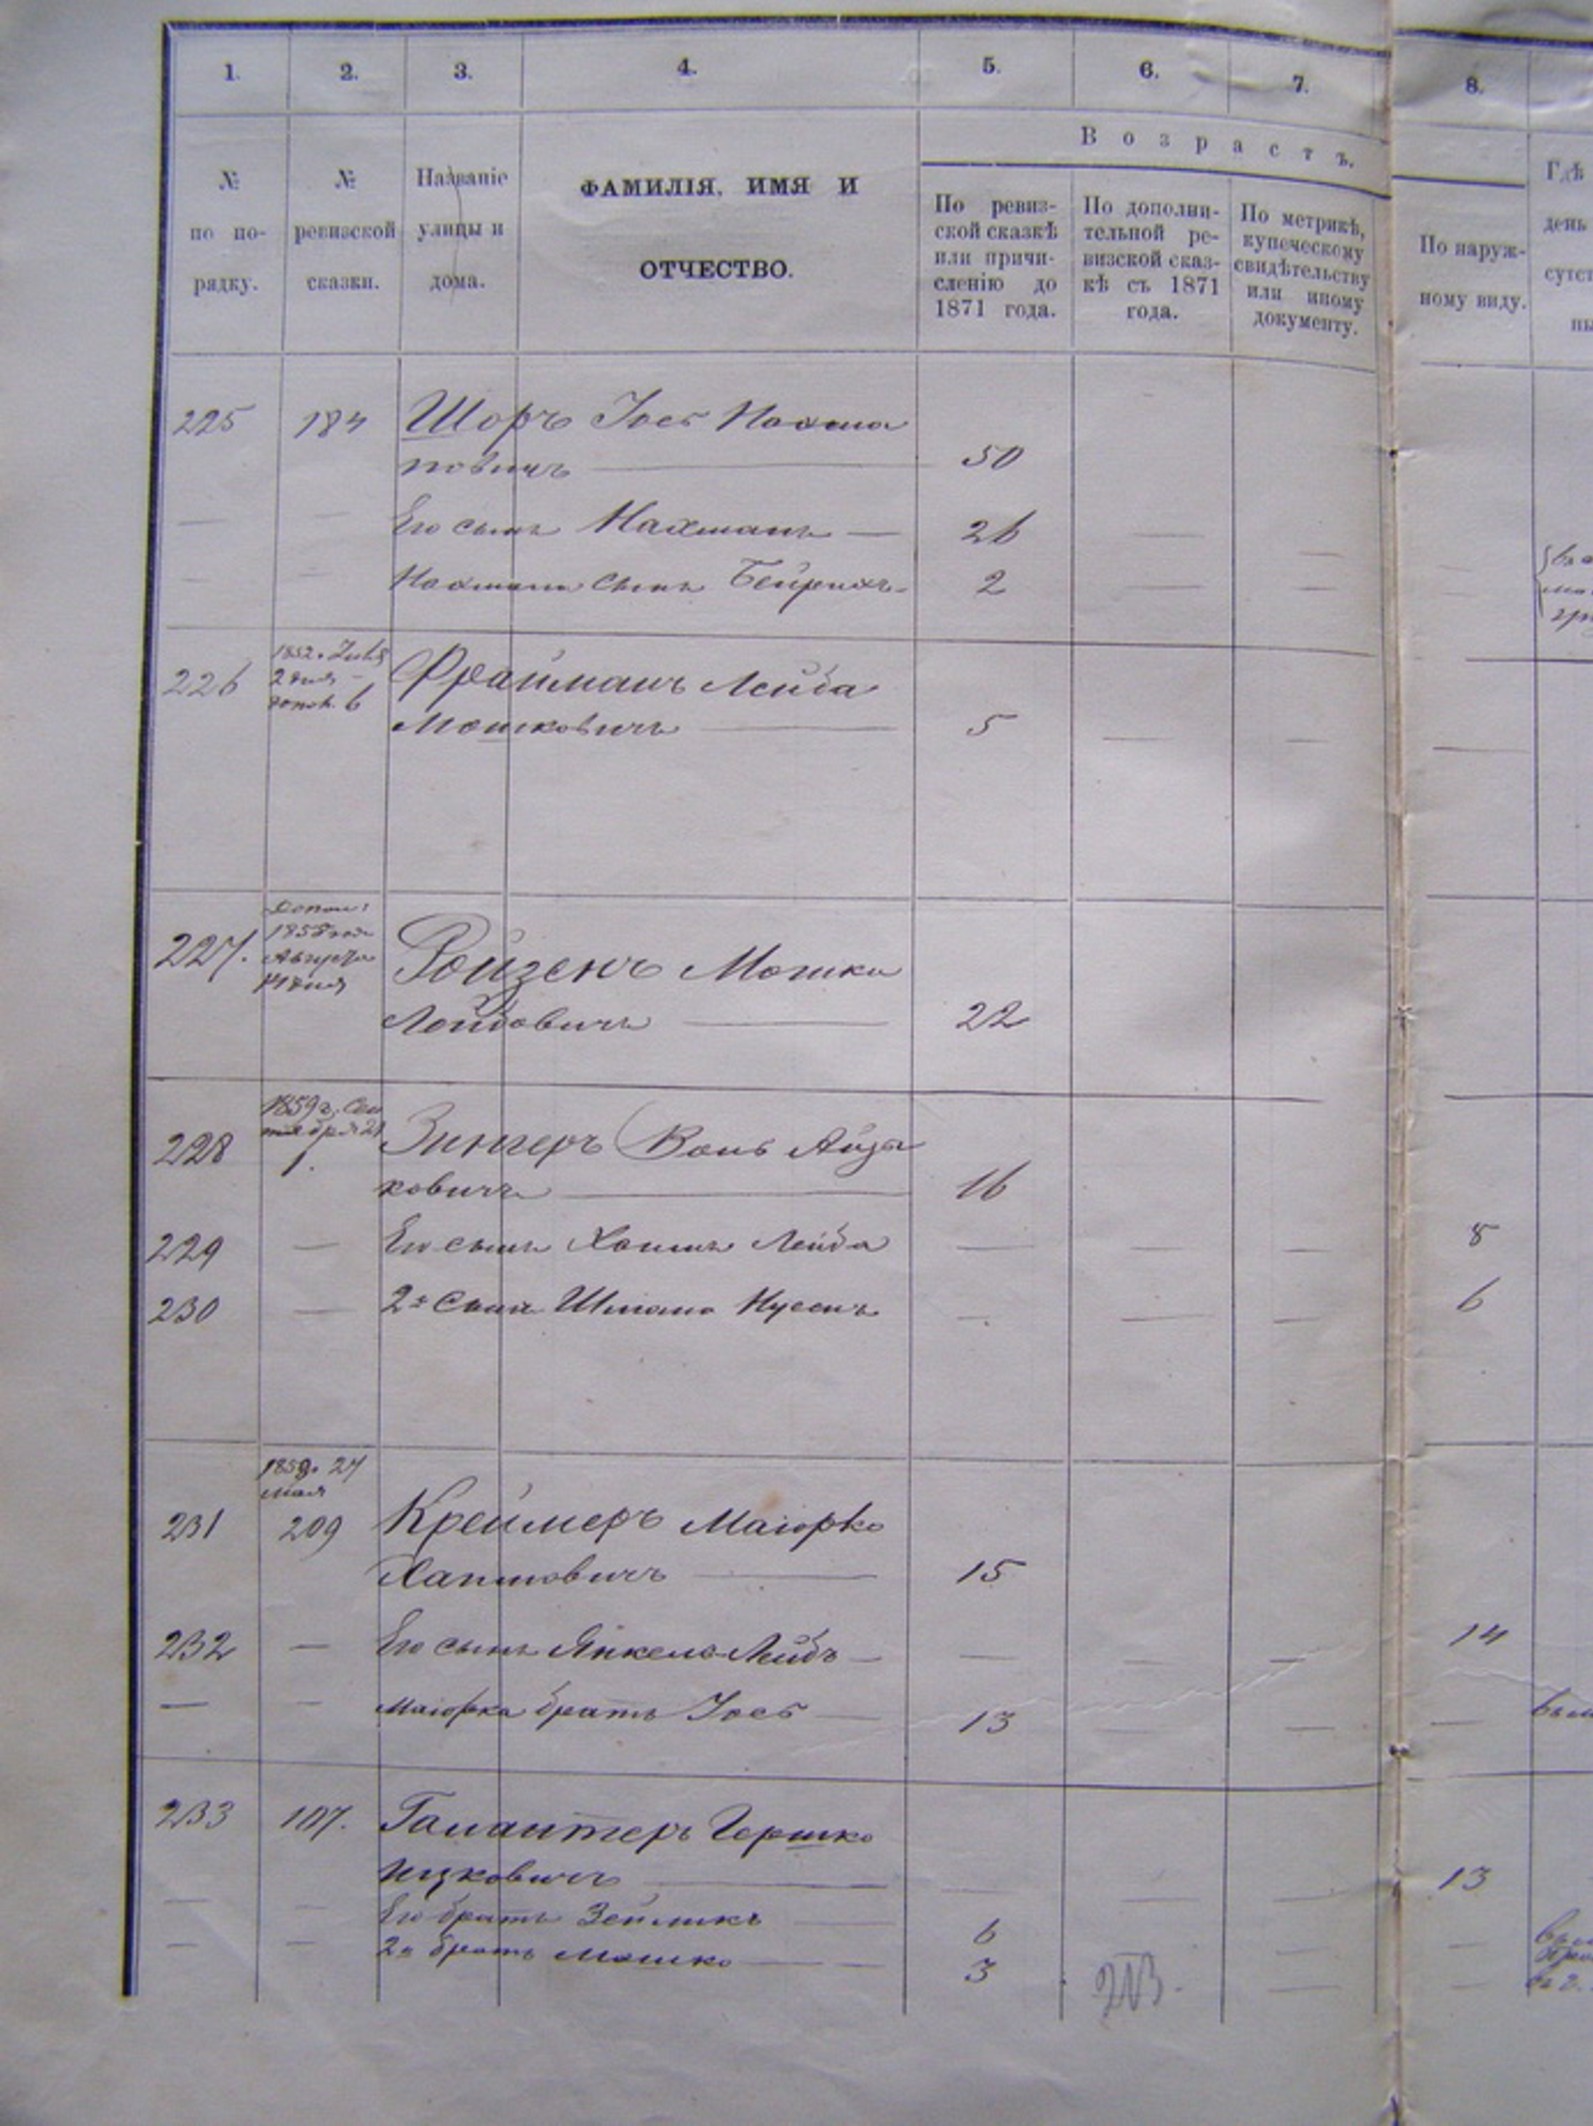 1. 2. 3. 4. 5. 6. 7. 8.
В о з р а с т ъ.
№ по по-рядку.
№ ревизской сказки.
Названіе улицы и дома.
ФАМИЛІЯ, ИМЯ И
ОТЧЕСТВО.
По ревиз-
ской сказкѣ
или причи-
сленію до
1871 года.
По дополни-
тельной ре-
визской сказ-
кѣ съ 1871
года.
По метрикѣ,
купеческому
свидѣтельству
или иному
документу.
По наруж-
ному виду.
Гдѣ
день
сутст
ны
225 184 Шоръ Іосъ Нахма
новичъ — 50
— — Его сынъ Нахманъ — 26 — —
— — Нахмана сынъ 2 — —
226 1852. 6 Фрайманъ Лейба
Мошковичъ — 5 — — —
227. Допол: 1858 года Августа Ройзенъ Мошка
Лейбовичъ — 22
228 1859 г. Сен
тября 21 1. Зингеръ Айзи
ковичъ — 16
229 — Его сынъ Хаимъ Лейба — — — 8
230 — 2й сынъ Шлома Нусенъ — — — 6
1859. 27
мая
231 209 Креймеръ Маіорко
Хаимовичъ — 15
232 — Его сынъ Янкель-Лейбъ — — — — 14
— — Маіорка братъ Іосъ — 13 — — —
233 107. Галантеръ Гершко
Ицковичъ — — — — 13
— — Его братъ Зейликъ — 6 — —
— — 2й братъ Мошко — — 3 — —